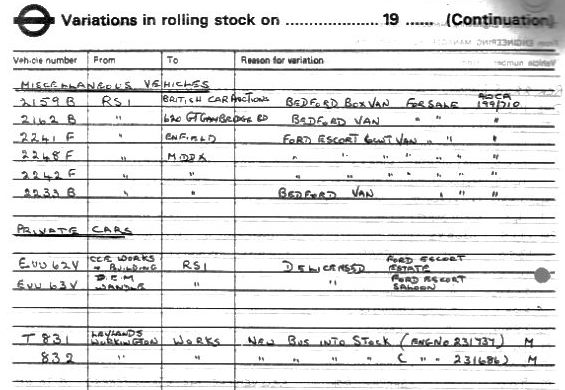 Variations in rolling stock on .................... 19 ...... (Continuation)
Vehicle number From To Reason for variation
MISCELLANEOUS VEHICLES
2159 B RS1 BRITISH CAR AUCTIONS BEDFORD BOXVAN FOR SALE AOCA 199/210
2162 B " 620 GT CAMBRIDGE RD BEDFORD VAN " " "
2241 F " ENFIELD FORD ESCORT VAN " " "
2248 F " MIDDX " " " " " "
2242 F " " " " " " " "
2233 B " " BEDFORD VAN " " "
PRIVATE CARS
EVU 62V CCE WORKS & BUILDING RS1 DELICENSED FORD ESCORT ESTATE
EVU 63V WANDLE " " FORD ESCORT SALOON
T 831 LEYLANDS WORKINGTON WORKS NEW BUS INTO STOCK (ENG No 231737) M
832 " " " " " " " ( " " 231686) M